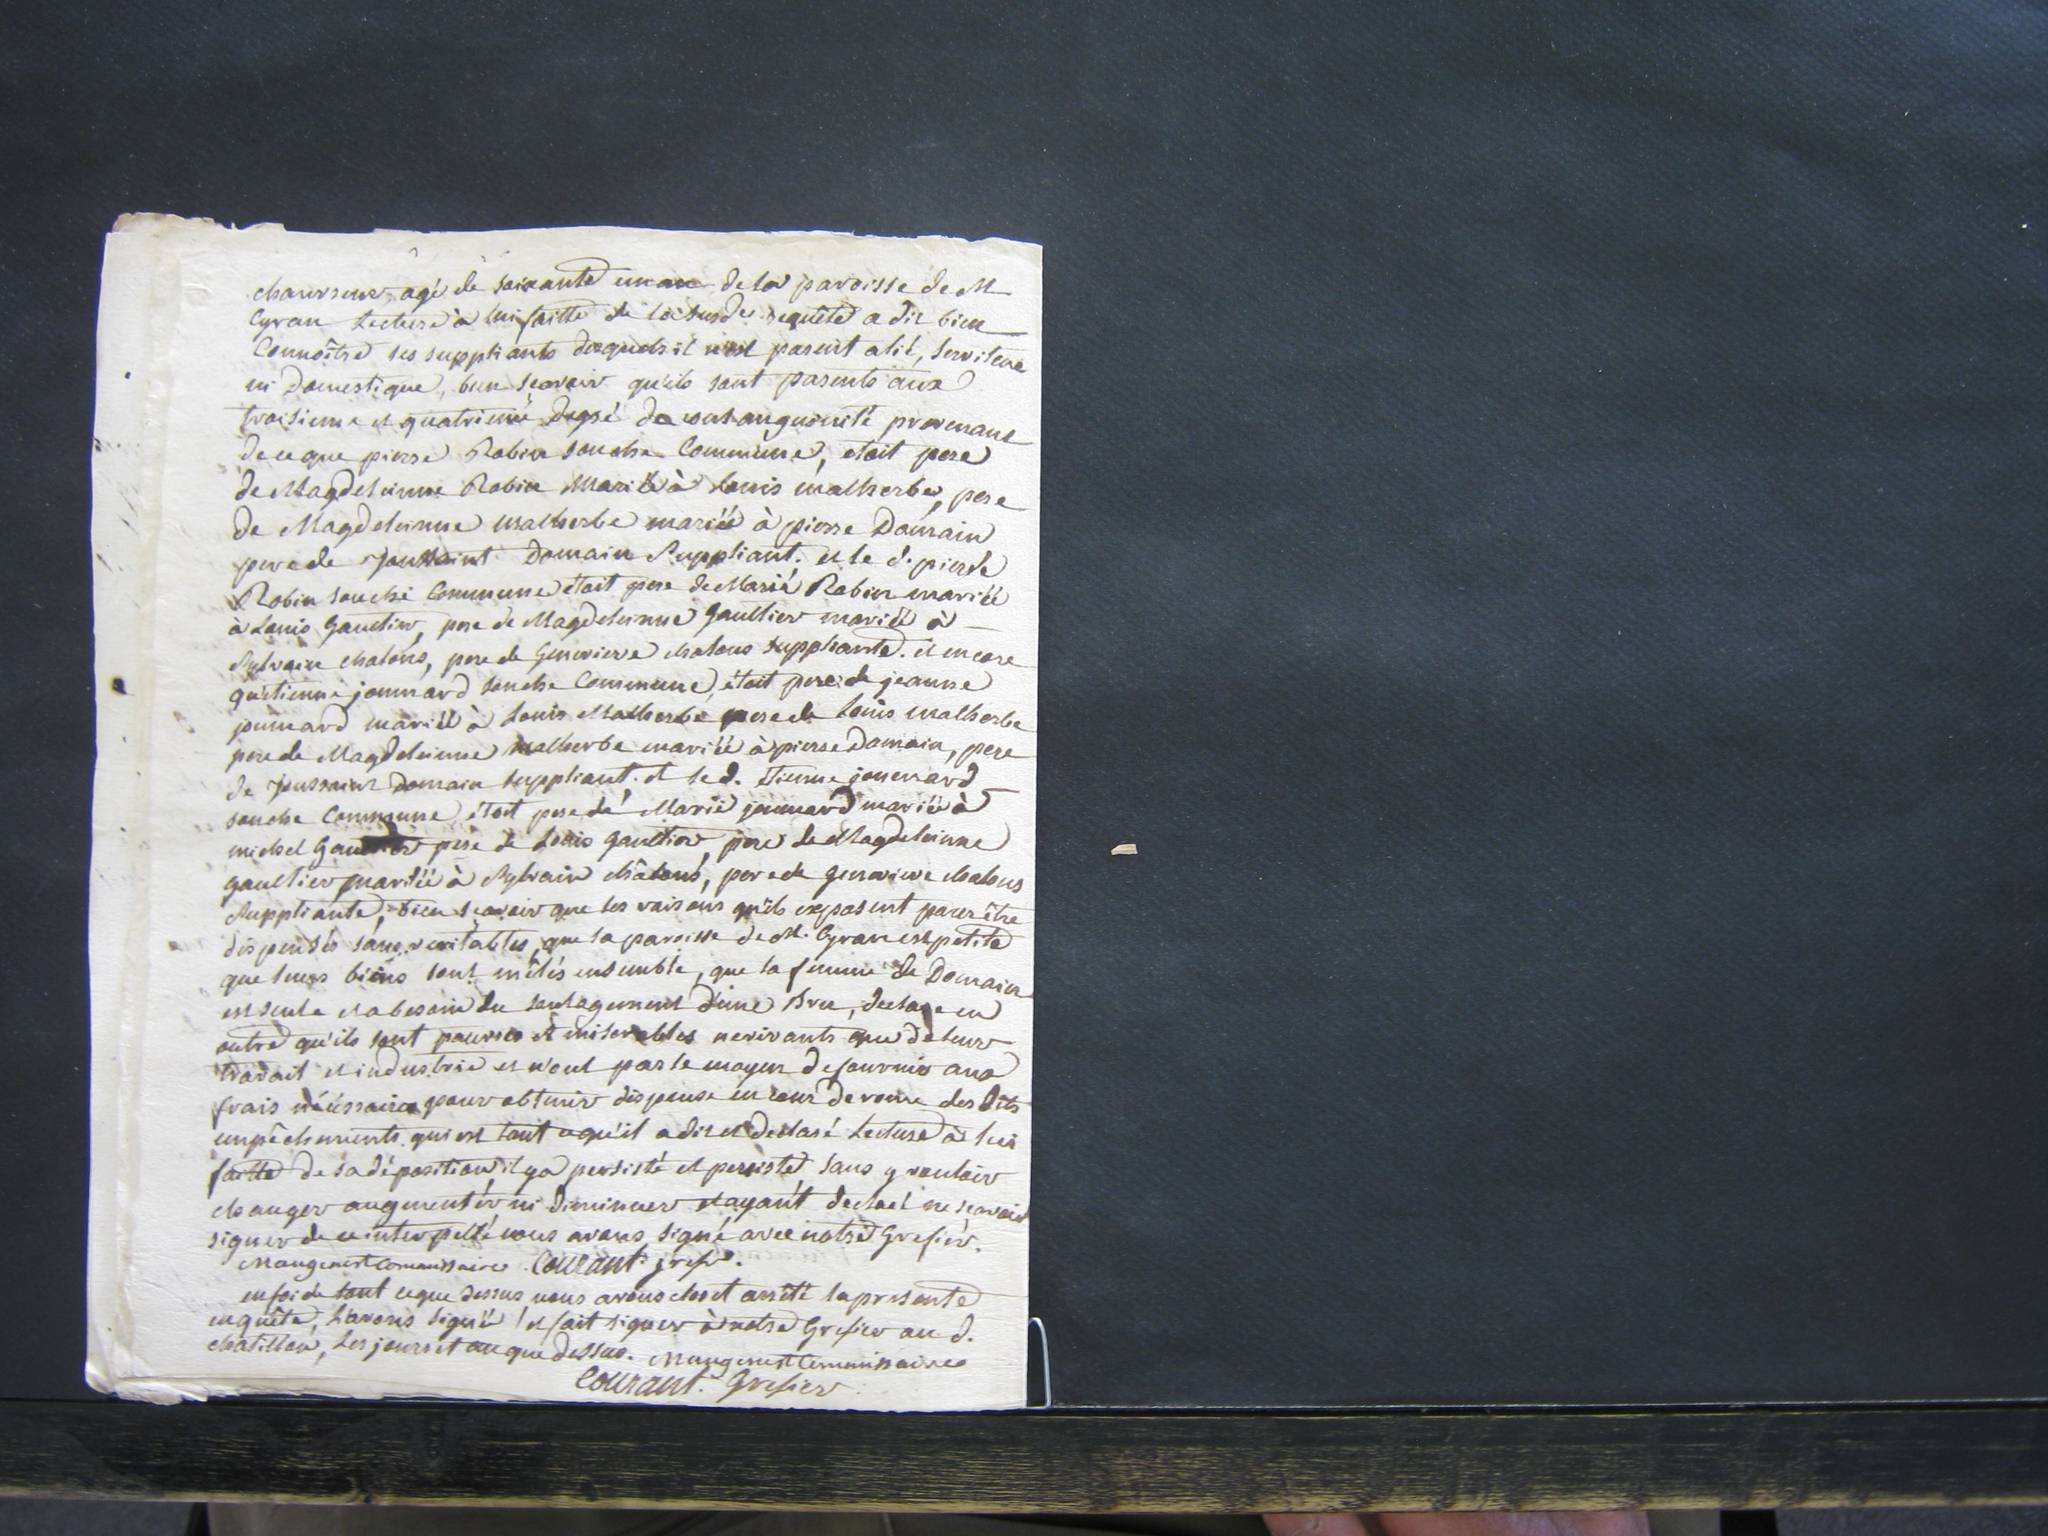 agé de soixante un ans de la paroisse de St
Cyran Lecture à lui faitte de la susde requête a dit bien
Connoître les suppliants desquels il n'est parent alié, serviteur
ni domestique, bien scavoir qu'ils sont parents aux
troisieme et quatrieme degré de consanguinité provenant
de ce que pierre Robin souche Commune, etoit pere
de Magdeleinne Robin Mariée à Louis malherbe, pere
de Magdeleinne malherbe mariée à pierre Domain
pere de Toussaint Domain Suppliant. et le d. pierre
Robin souche Commune étoit pere de Marie Robin mariée
à Louis Gaultier, pere de Magdeleinne Gaultier mariée à
Sylvain chalons, pere de Genevieve chalons suppliante. et encore
qu'etienne joumard souche Commune, étoit pere de jeanne
joumard mariée à Louis Malherbe pere de Louis malherbe
pere de Magdeleinne malherbe mariée à pierre Domain, pere
de Toussaint Domain suppliant. et le d. Etienne joumard
souche Commune étoit pere de Marie joumard mariée à
michel Gaultier pere de Louis Gaultier, pere de Magdeleinne
gaultier mariée à Sylvain châlons, pere de genevieve chalons
Suppliante, bien scavoir que les raisons qu'ils exposent pour être
dispensés sont veritables, que la paroisse de St. Cyran est petite
que leurs biens sont mêlés ensemble, que la femme de Domain
est seule et a besoin du soulagement d'une Bru, declare en
outre qu'ils sont pauvres et miserables ne vivants que de leur
travail et industrie et n'ont pas le moyen de fournir aux
frais nécéssaires pour obtenir dispense en cour de rome des dits
empêchements qui est tout ce qu'il a dit et declaré Lecture à lui
faitte de sa déposition, il y a persisté et persiste sans y vouloir
changer augmenter ni diminuer et ayant declaré ne scavoir
signer de ce interpellé nous avons signé avec notre Grefier.
Commissaire. Courant grefr.
en foi de tout ce que dessus nous avons clos et arrêté la presente
enquête, L'avons signée et fait signer à notre Grefier au d.
chatillon, Les jours et an que dessus. Commissaire
Courant. Grefier